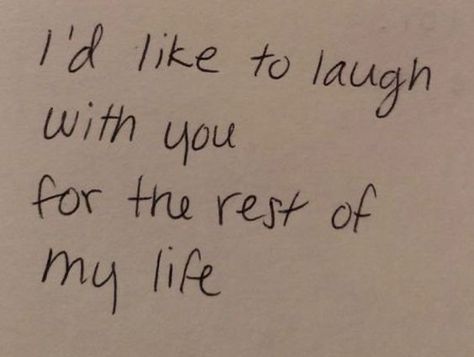 I'd like to laugh
with you
for the rest of
my life